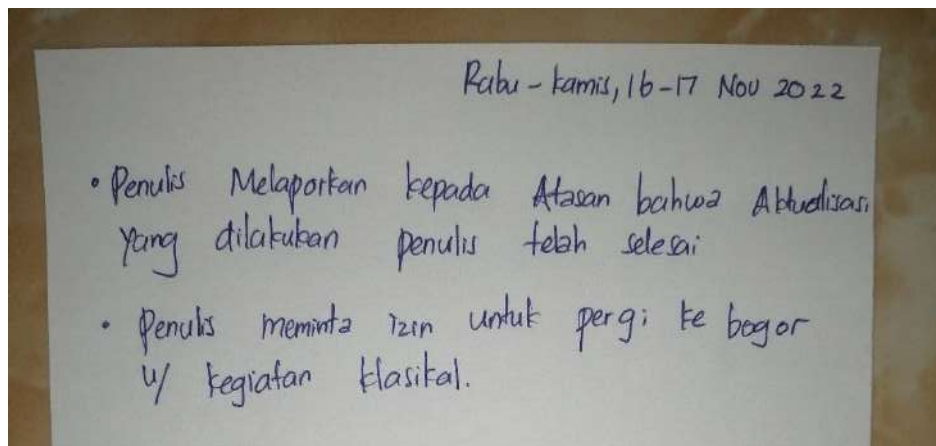 Rabu - kamis, 16-17 Nov 2022
• Penulis Melaporkan kepada Atasan bahwa Aktualisasi
yang dilakukan penulis telah selesai
• Penulis meminta izin untuk pergi ke bogor
u/ kegiatan klasikal.